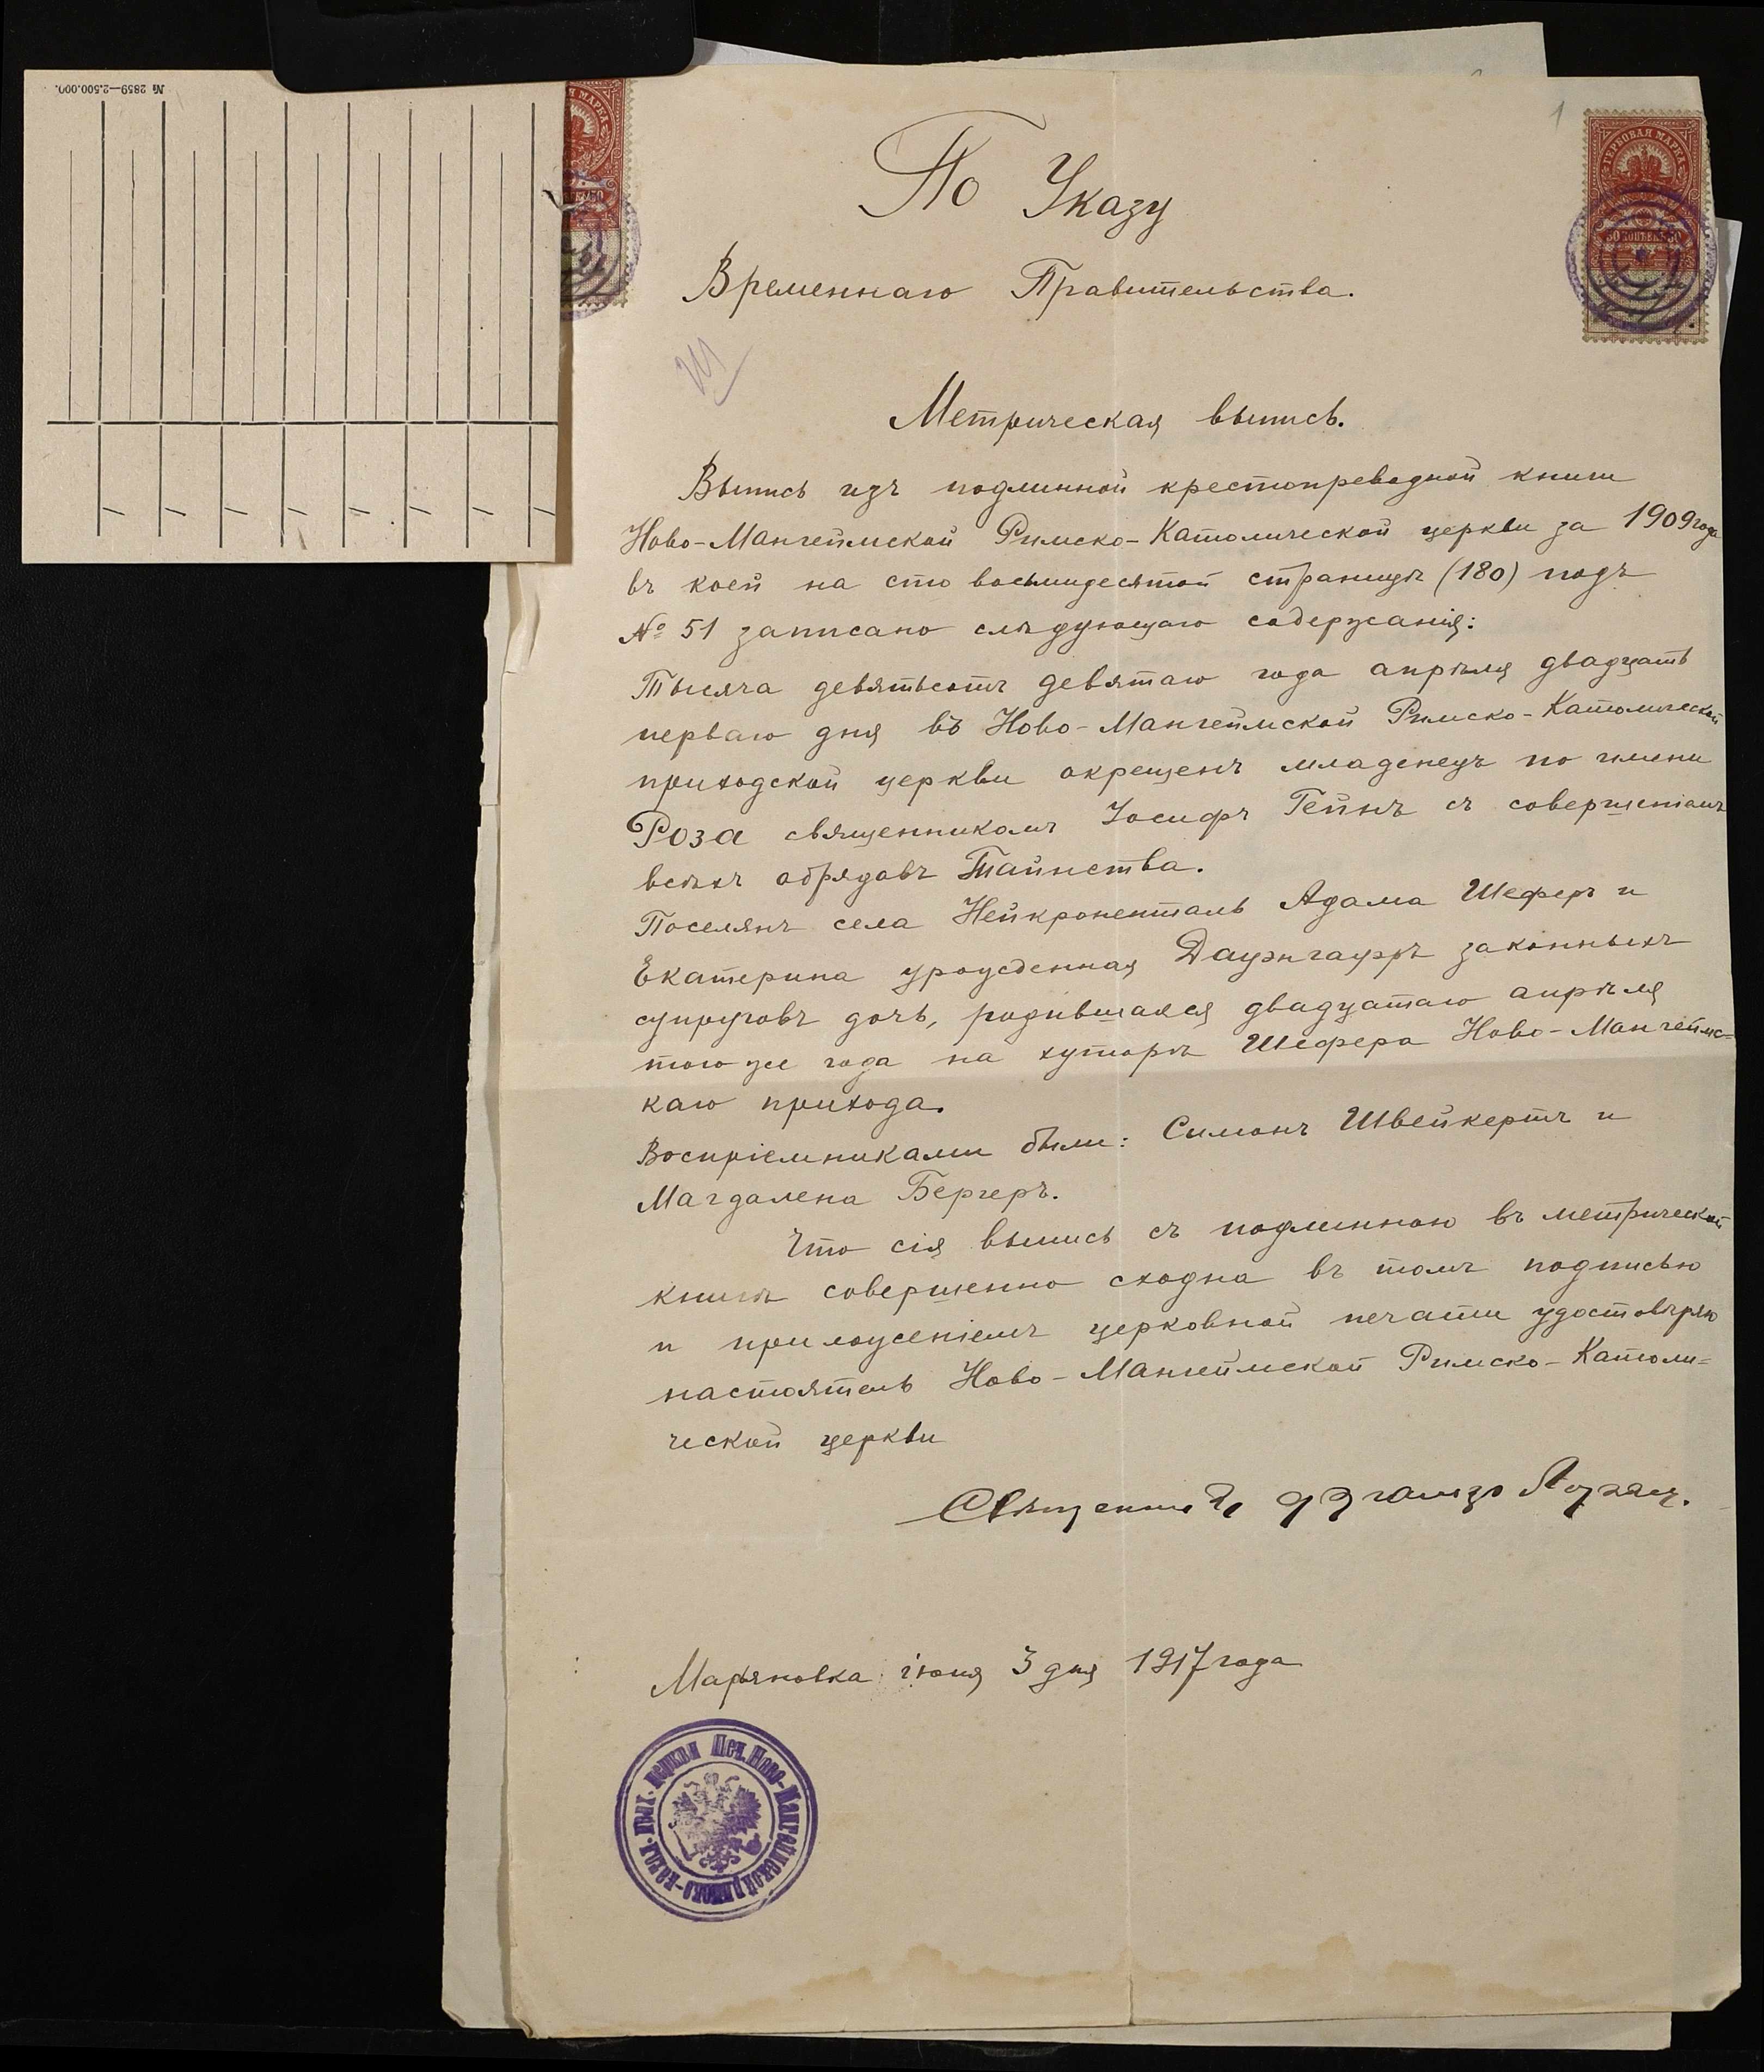 № 2859—2.500.000.
1
ГЕРБОВАЯ МАРКА
50 КОПѢЕКЪ 50
По Указу
Временнаго Правительства.
Метрическая выпись.
Выпись изъ подлинной крестопреводной книги
Ново-Мангеймской Римско-Католической церкви за 1909 года
въ коей на сто восьмидесятой страницѣ (180) подъ
№ 51 записано слѣдующаго содержанія:
Тысяча девятьсотъ девятаго года апрѣля двадцать
перваго дня въ Ново-Мангеймской Римско-Католической
приходской церкви окрещенъ младенецъ по имени
Роза священникомъ Іосифъ Гейнъ съ совершеніемъ
всѣхъ обрядовъ Таинства.
Поселянъ села Нейкроненталь Адама Шеферъ и
Екатерина урожденная Дауэнгауэръ законныхъ
супруговъ дочь, родившаяся двадцатаго апрѣля
того же года на хуторѣ Шефера Ново-Мангеймс=
каго прихода.
Воспріемниками были: Симонъ Швейкертъ и
Магдалена Бергеръ.
Что сія выпись съ подлинною въ метрической
книгѣ совершенно сходна въ томъ подписью
и приложеніемъ церковной печати удостовѣряю
настоятель Ново-Мангеймской Римско-Католи=
ческой церкви
Священникъ
Марьяновка іюня 3 дня 1917 года
Печ. Ново-Мангеймской римско-катол. прих. церкви